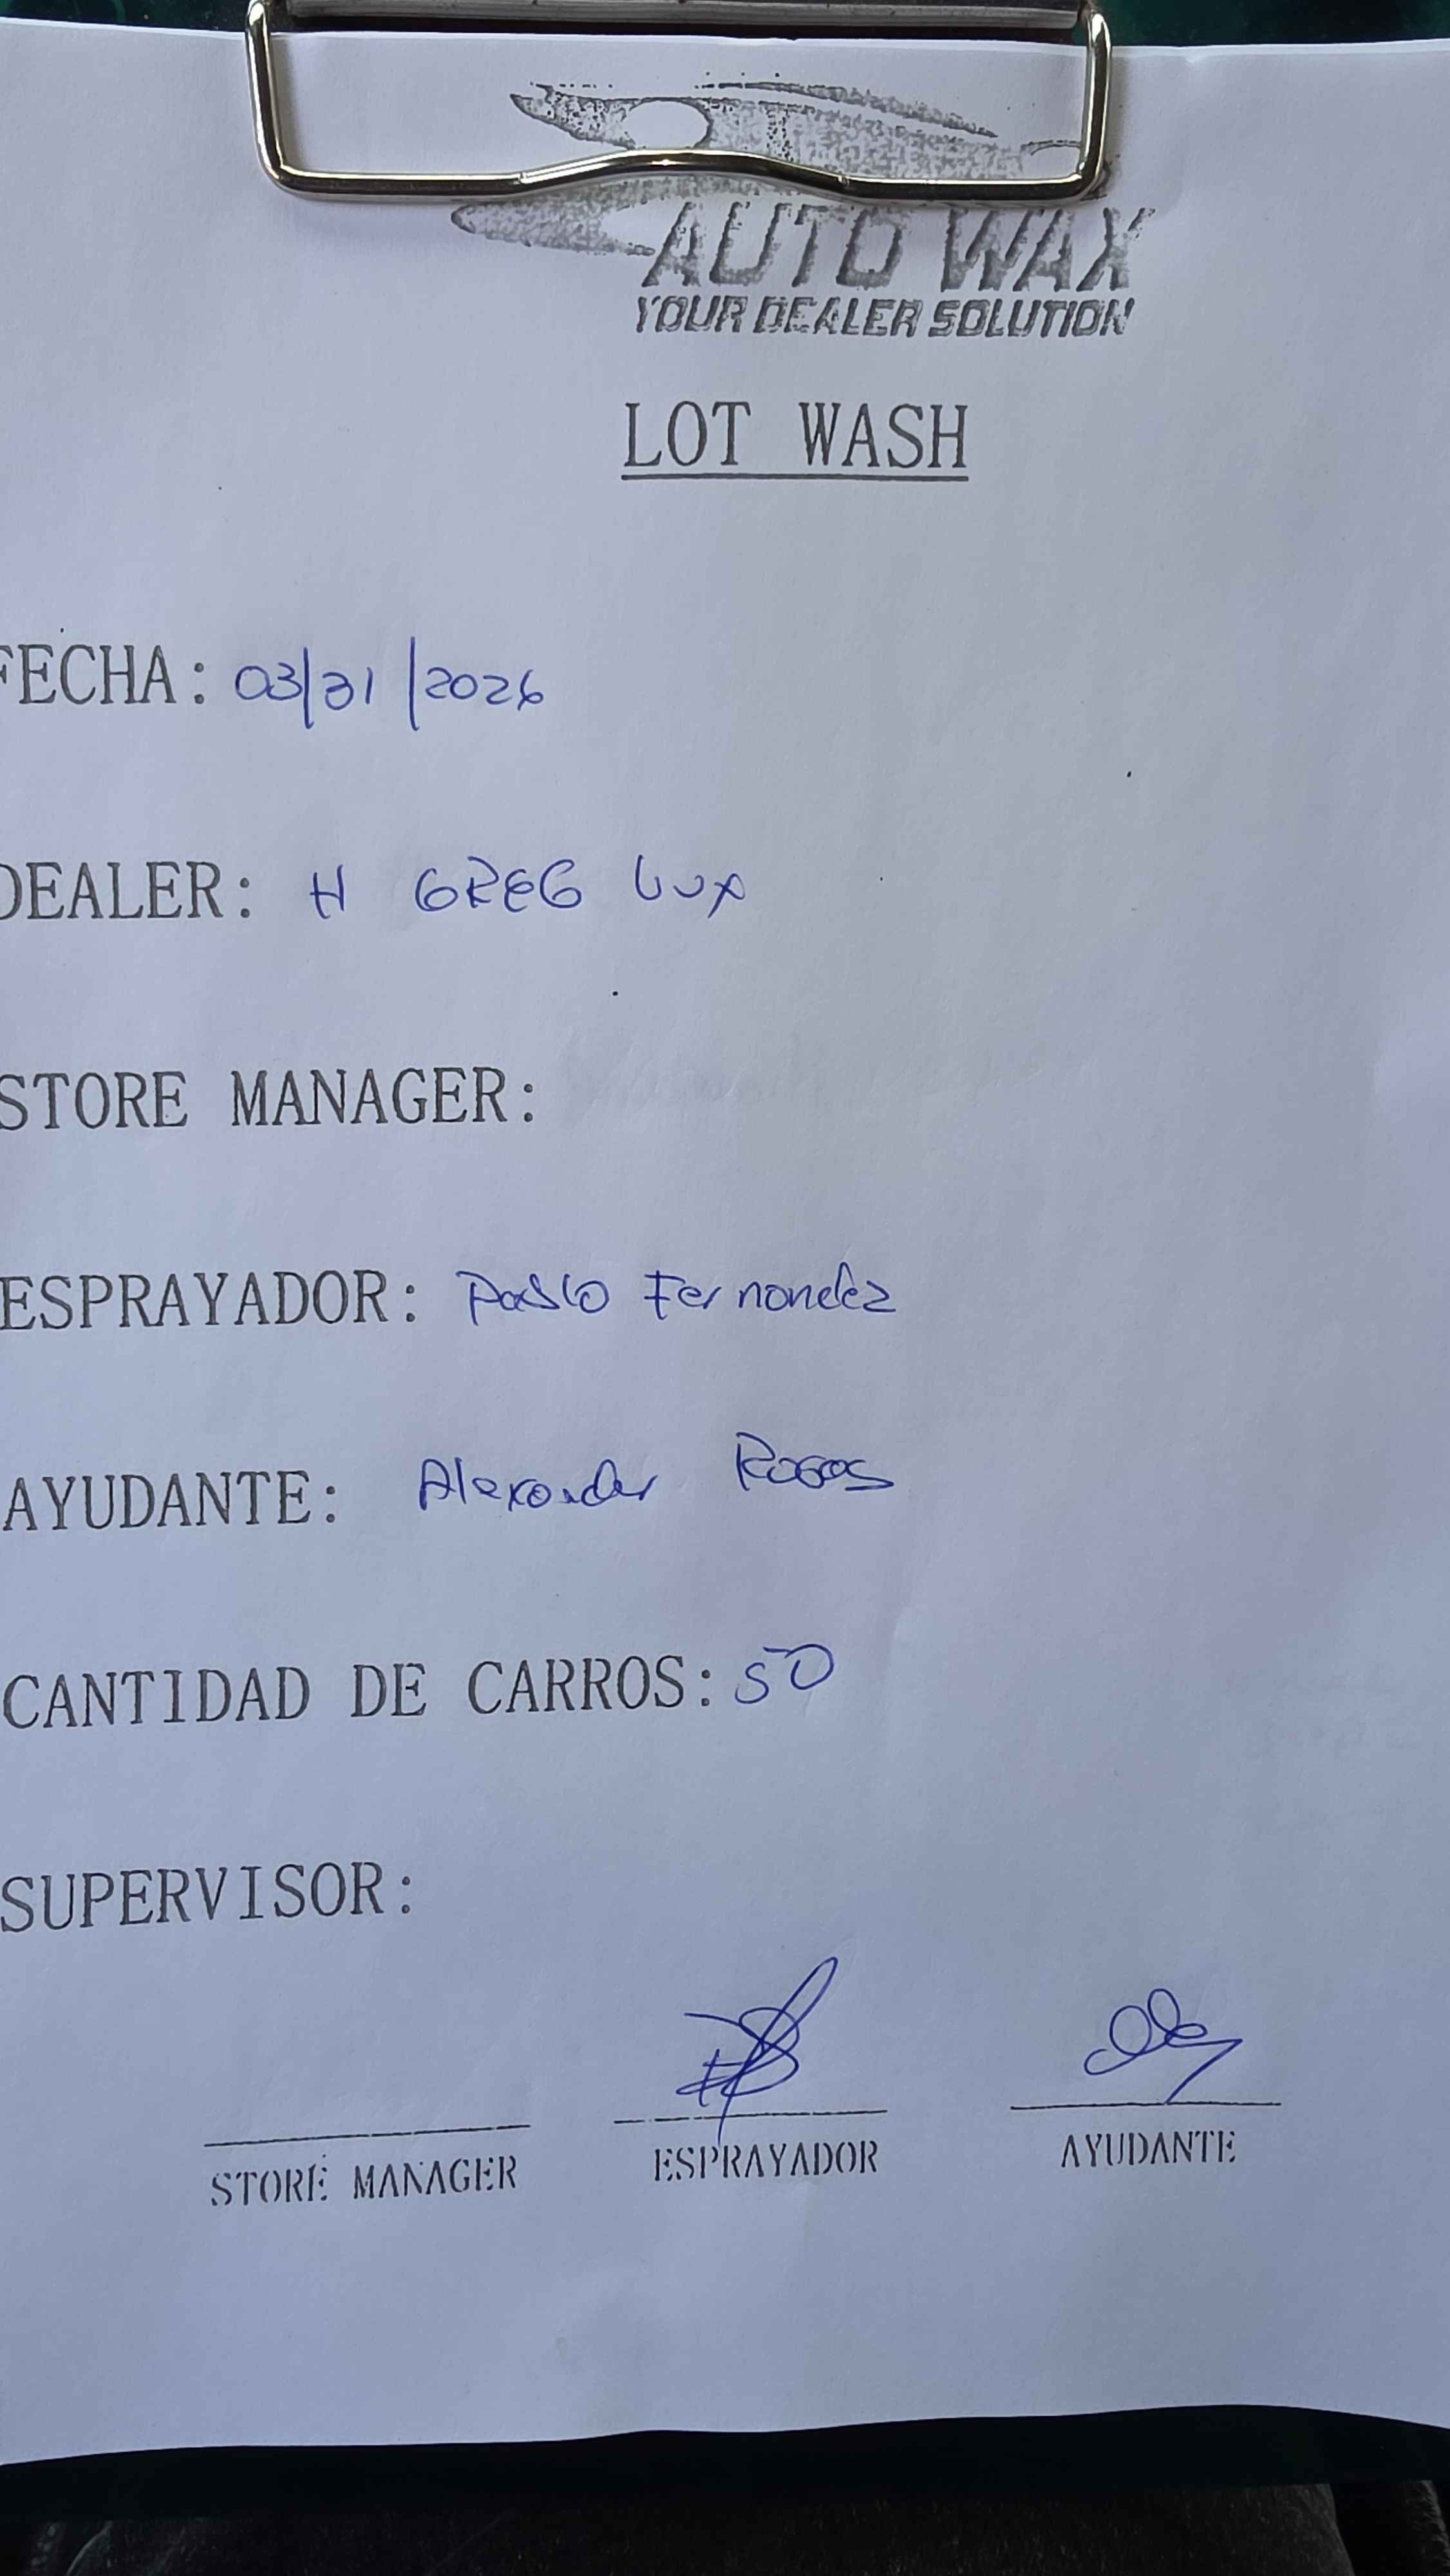 AUTO WAX
YOUR DEALER SOLUTION
LOT WASH
FECHA: 03/31/2026
DEALER: H GREG LUX
STORE MANAGER:
ESPRAYADOR: Pablo Fernandez
AYUDANTE: Alexander Rosas
CANTIDAD DE CARROS: 50
SUPERVISOR:
STORE MANAGER ESPRAYADOR AYUDANTE